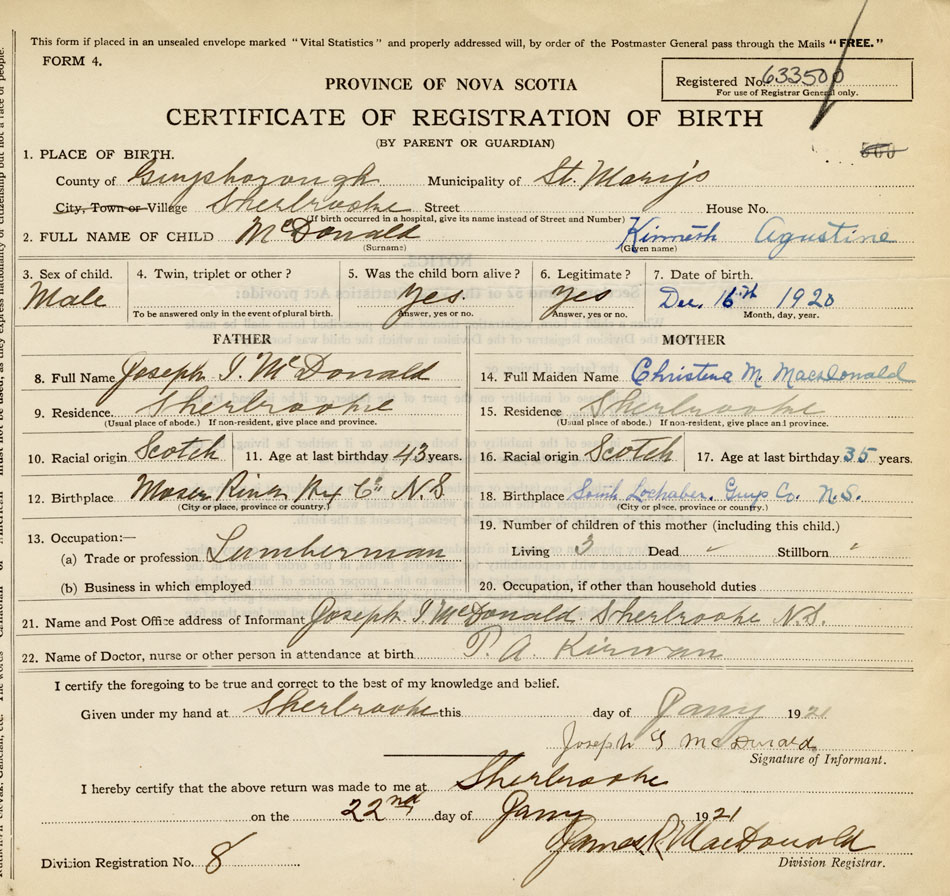 This form if placed in an unsealed envelope marked "Vital Statistics" and properly addressed will, by order of the Postmaster General pass through the Mails "FREE."
FORM 4.
Registered No. 633500
For use of Registrar General only.
PROVINCE OF NOVA SCOTIA
CERTIFICATE OF REGISTRATION OF BIRTH
(BY PARENT OR GUARDIAN)
500
1. PLACE OF BIRTH.
County of Guysborough Municipality of St. Mary's
City, Town or Village Sherbrooke Street House No.
(If birth occurred in a hospital, give its name instead of Street and Number)
2. FULL NAME OF CHILD McDonald Kinneth Agustine
(Surname) (Given name)
3. Sex of child. 4. Twin, triplet or other? 5. Was the child born alive? 6. Legitimate? 7. Date of birth.
Male yes. yes Dec. 16th 1920
To be answered only in the event of plural birth. Answer, yes or no. Answer, yes or no. Month, day, year.
FATHER
8. Full Name Joseph I. McDonald
9. Residence. Sherbrooke
(Usual place of abode.) If non-resident, give place and province.
10. Racial origin Scotch 11. Age at last birthday 43 years.
12. Birthplace Moser River Hx Co N.S.
(City or place, province or country.)
13. Occupation:—
(a) Trade or profession Lumberman
(b) Business in which employed
MOTHER
14. Full Maiden Name Christena M. Macdonald
15. Residence Sherbrooke
(Usual place of abode.) If non-resident, give place and province.
16. Racial origin Scotch 17. Age at last birthday 35 years.
18. Birthplace South Lochaber. Guys Co. N.S.
(City or place, province or country.)
19. Number of children of this mother (including this child.)
Living 3 Dead " Stillborn "
20. Occupation, if other than household duties
21. Name and Post Office address of Informant Joseph I. McDonald. Sherbrooke N.S.
22. Name of Doctor, nurse or other person in attendance at birth P. A. Kirwan
I certify the foregoing to be true and correct to the best of my knowledge and belief.
Given under my hand at Sherbrooke this day of Jany 1921
Joseph I McDonald
Signature of Informant.
I hereby certify that the above return was made to me at Sherbrooke
on the 22nd day of Jany 1921
James R. MacDonald
Division Registration No. 8 Division Registrar.